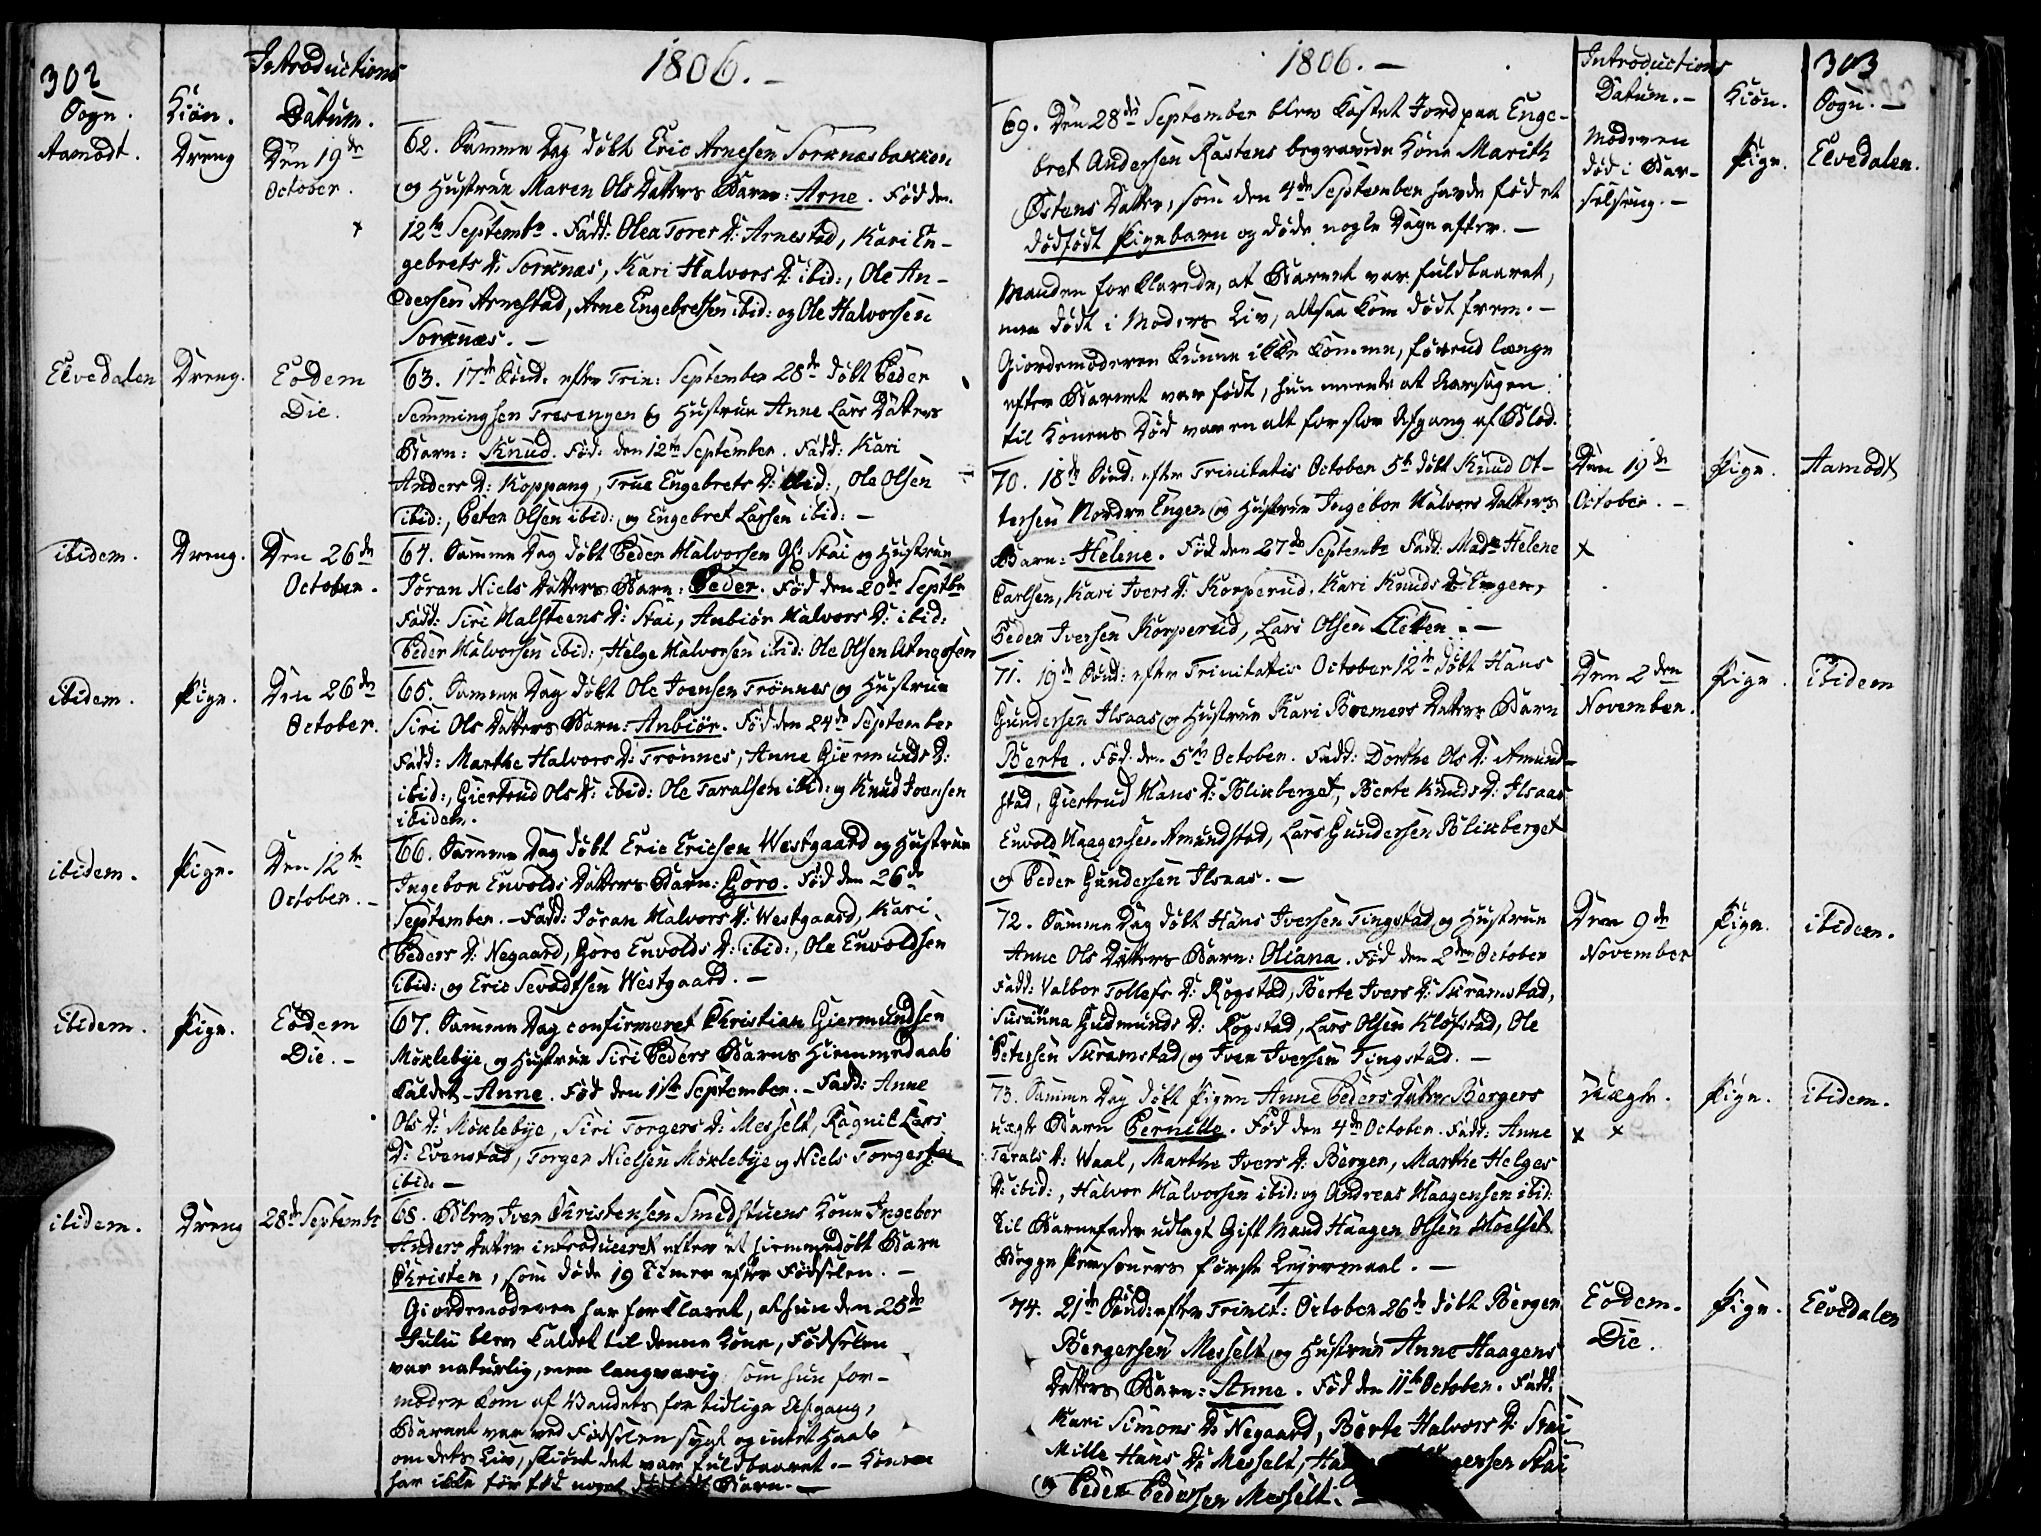 302
Introductions
1806. -
Sogn.
Kiön.
Datum.
Aamodt.
Dreng
Den 19de
October.
62. Samme Dag döbt Eric Arnesen Sorknæsbakken
og Hustrue Maren Ols Datters Barn: Arne. Föd den
12te Septembr. Fadd: Olea Tores D: Arnestad, Kari En-
gebrets D: Sorknæs, Kari Halvors D: ibid:, Ole An-
dersen Arnestad, Arne Engebretsen ibid: og Ole Halvorsen
Sorknæs. -
Elvedalen
Dreng.
Eodem
Die.
63. 17de Sönd. efter Trin: September 28de döbt Peder
Semmingsen Tresengen og Hustrue Anne Lars Datters
Barn: Knud. Föd: den 12te September. Fadd: Kari
Anders D: Koppang, True Engebrets D: ibid:, Ole Olsen
ibid:, Peter Olsen ibid: og Engebret Larsen ibid: -
ibidem.
Dreng.
Den 26de
October.
64. Samme Dag döbt Peder Halvorsen Gl: Stai og Hustrue
Jöran Niels Datters Barn: Peder. Föd den 20de Septbr
Fadd: Siri Halsteens D: Stai, Anbiör Halvors D: ibid:
Peder Halvorsen ibid:, Helge Halvorsen ibid: Ole Olsen Atneosen
ibidem.
Pige.
Den 26de
October.
65. Samme Dag döbt Ole Joensen Trönnes og Hustrue
Siri Ols Datters Barn: Anbiör. Föd den 24de September
Fadd: Marthe Halvors D: Trönnes, Anne Giermunds D:
ibid:, Giertrud Ols D: ibid: Ole Taralsen ibid: og Knud Joensen
ibidem.
ibidem.
Pige.
Den 12te
October.
66. Samme Dag döbt Eric Ericsen Westgaard og Hustrue
Ingebor Envolds Datters Barn: Goro. Föd den 26de
September. - Fadd: Jöran Halvors D: Westgaard, Kari
Peders D: Negaard, Goro Envolds D: ibid:, Ole Envoldsen
ibid: og Eric Sevadtsen Westgaard. -
ibidem.
Pige.
Eodem
Die. -
67. Samme Dag confirmeret Christian Giermundsen
Möklebye og Hustrue Siri Peders Barns Hiemmedaab
kaldet - Anne. Föd den 11te September. - Fadd: Anne
Ols D: Möklebye, Siri Torgers D: Messelt, Ragnil Lars
D: Evenstad, Torger Nielsen Möklebye og Niels Torgersen
ibid. -
ibidem.
Dreng
28de Septembr
68. Blev Iver Christensen Smedstuens Kone Ingebor
Anders Datter introduceret efter et hiemmedöbt Barn
Christen, som döde 19 Timer efter Födselen. -
Giordemoderen har forklaret, at hun den 25de
Julii blev kaldet til denne Kone, Födselen
var naturlig, men langvarig som hun for-
meder kom af Vandets for tidlige Afgang,
Barnet var ved Födselen sygt og intet Haab
om dets Liv, skiönt det var fuldbaaret. - Konen
har ikke för föd noget Barn. -
1806. -
Introductions
303
Datum. -
Kiön.
Sogn. -
69. Den 28de September blev kastet Jord paa Enge-
bret Andersen Rastens begravede Kone Marith
Östens Datter, som den 4de September havde föd et
dödfödt Pigebarn og döde nogle Dage efter. -
Manden forklarede, at Barnet var fuldbaaret,
men dödt i Moders Liv, altsaa kom dödt frem. -
Giordemoderen kunne ikke komme, förend længe
efter Barnet var födt, hun meente at Aarsagen
til Konens Död var en alt for stor Afgang af Blod.
Moderen
död i Bar-
selseng. -
Pige.
Elvedalen.
70. 18de Sönd: efter Trinitatis October 5te döbt Knud Ot-
tersen Nordre Engen og Hustrue Ingebor Halvors Datters
Barn: Helene. Föd den 27de Septembr Fadd: Made Helene
Carlsen, Kari Ivers D: Korperud, Kari Knuds D: Engen,
Peder Iversen Korperud, Lars Olsen Sletten. -
Den 19de
October. -
Pige.
Aamodt
71. 19de Sönd: efter Trinitatis October 12te döbt Hans
Gundersen Ilsaas og Hustrue Kari Bremers Datters Barn
Berte. Föd den 5te October. Fadd: Dorthe Ols D: Amund-
stad, Giertrud Hans D: Blikberget, Berte Knuds D: Ilsaas
Envold Haagensen Amundstad, Lars Gundersen Blikberget
og Peder Gundersen Ilsaas. -
Den 2den
November.
Pige.
ibidem
72. Samme Dag döbt Hans Iversen Tingstad og Hustrue
Anne Ols Datters Barn: Oliana. Föd den 2den October
Fadd: Valbor Tollefs D: Rogstad, Berte Ivers D: Skramstad,
Susanna Gudmunds D: Rogstad, Lars Olsen Klöfstad, Ole
Petersen Skramstad og Iver Iversen Tingstad. -
Den 9de
November
Pige.
ibidem.
73. Samme Dag döbt Pigen Anne Peders Datter Bergers
uægte Barn Pernille. Föd den 4de October. Fadd: Anne
Tarals D: Waal, Marthe Ivers D: Berger, Marthe Helges
D: ibid:, Halvor Halvorsen ibid: og Andreas Haagensen ibid:
Til Barnefader udlagt Gift Mand Haagen Olsen Moelset
Begge Personers förste Leiermaal. -
Uægte.
Pige.
ibidem.
74. 21de Sönd: efter Trinit: October 26de döbt Berger
Bergersen Messelt og Hustrue Anne Haagens
Datters Barn: Anne. Föd den 11te October. Fadd.
Kari Simons D: Negaard, Berte Halvors D: Stai
Mille Hans D: Messelt, Ha gersen Stai
og Peder Pedersen Messelt. -
Eodem.
Die.
Pige.
Elvedalen